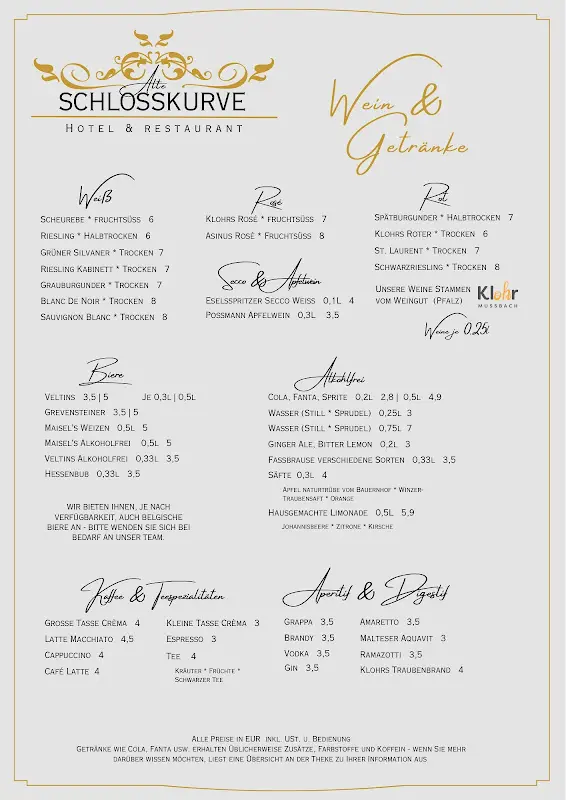 Alte
SCHLOSSKURVE
HOTEL & RESTAURANT
Wein &
Getränke
Weiß
SCHEUREBE * FRUCHTSÜSS 6
RIESLING * HALBTROCKEN 6
GRÜNER SILVANER * TROCKEN 7
RIESLING KABINETT * TROCKEN 7
GRAUBURGUNDER * TROCKEN 7
BLANC DE NOIR * TROCKEN 8
SAUVIGNON BLANC * TROCKEN 8
Rosé
KLOHRS ROSÉ * FRUCHTSÜSS 7
ASINUS ROSÉ * FRUCHTSÜSS 8
Secco & Apfelwein
ESELSSPRITZER SECCO WEISS 0,1L 4
POSSMANN APFELWEIN 0,3L 3,5
Rot
SPÄTBURGUNDER * HALBTROCKEN 7
KLOHRS ROTER * TROCKEN 6
ST. LAURENT * TROCKEN 7
SCHWARZRIESLING * TROCKEN 8
UNSERE WEINE STAMMEN
VOM WEINGUT (PFALZ)
Klohr
MUSSBACH
Weine je 0,25l
Biere
VELTINS 3,5 | 5 JE 0,3L | 0,5L
GREVENSTEINER 3,5 | 5
MAISEL'S WEIZEN 0,5L 5
MAISEL'S ALKOHOLFREI 0,5L 5
VELTINS ALKOHOLFREI 0,33L 3,5
HESSENBUB 0,33L 3,5
WIR BIETEN IHNEN, JE NACH
VERFÜGBARKEIT, AUCH BELGISCHE
BIERE AN - BITTE WENDEN SIE SICH BEI
BEDARF AN UNSER TEAM.
Alkohlfrei
COLA, FANTA, SPRITE 0,2L 2,8 | 0,5L 4,9
WASSER (STILL * SPRUDEL) 0,25L 3
WASSER (STILL * SPRUDEL) 0,75L 7
GINGER ALE, BITTER LEMON 0,2L 3
FASSBRAUSE VERSCHIEDENE SORTEN 0,33L 3,5
SÄFTE 0,3L 4
APFEL NATURTRÜBE VOM BAUERNHOF * WINZER-
TRAUBENSAFT * ORANGE
HAUSGEMACHTE LIMONADE 0,5L 5,9
JOHANNISBEERE * ZITRONE * KIRSCHE
Kaffee & Teespezialitäten
GROSSE TASSE CRÈMA 4
LATTE MACCHIATO 4,5
CAPPUCCINO 4
CAFÉ LATTE 4
KLEINE TASSE CRÈMA 3
ESPRESSO 3
TEE 4
KRÄUTER * FRÜCHTE *
SCHWARZER TEE
Aperitif & Digestif
GRAPPA 3,5
BRANDY 3,5
VODKA 3,5
GIN 3,5
AMARETTO 3,5
MALTESER AQUAVIT 3
RAMAZOTTI 3,5
KLOHRS TRAUBENBRAND 4
ALLE PREISE IN EUR INKL. UST. U. BEDIENUNG
GETRÄNKE WIE COLA, FANTA USW. ERHALTEN ÜBLICHERWEISE ZUSÄTZE, FARBSTOFFE UND KOFFEIN - WENN SIE MEHR
DARÜBER WISSEN MÖCHTEN, LIEGT EINE ÜBERSICHT AN DER THEKE ZU IHRER INFORMATION AUS